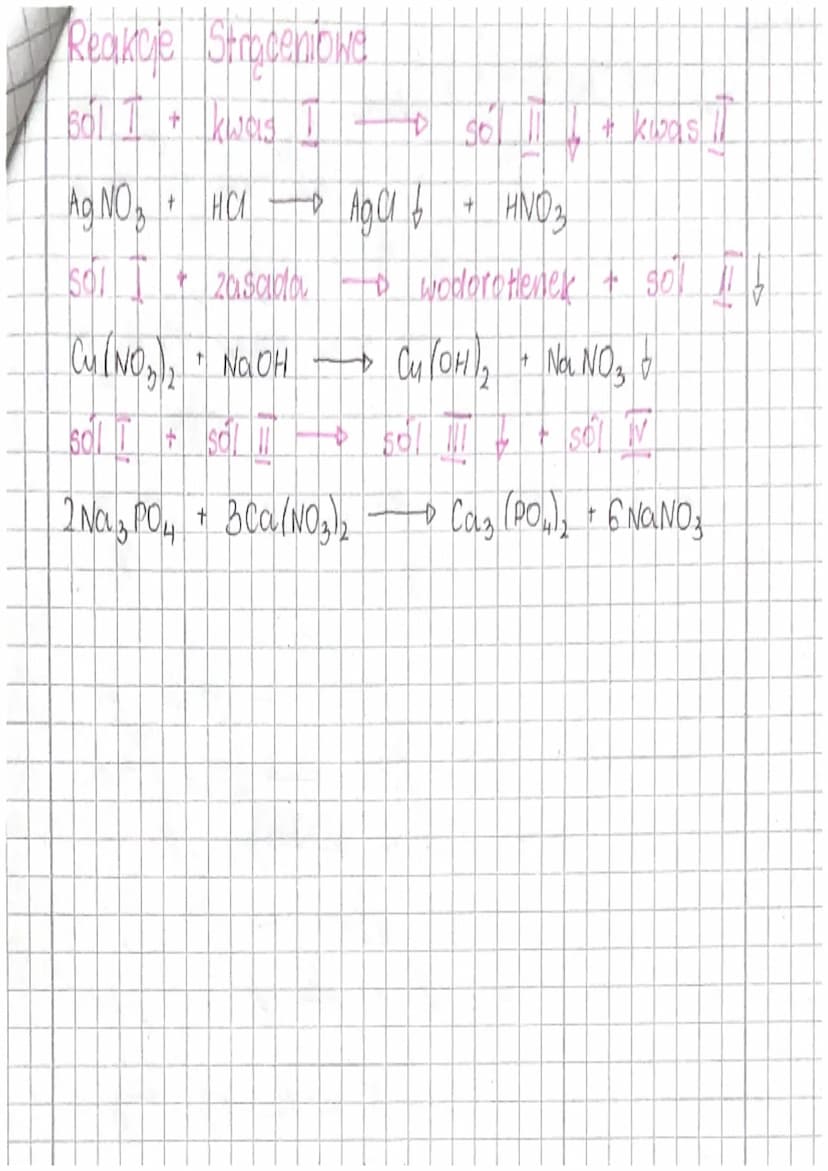 Reakcje Strąceniowe
sól I + kwas I → sól II ↓ + kwas II
AgNO₃ + HCl → AgCl ↓ + HNO₃
sól I + zasada → wodorotlenek + sól II ↓
Cu(NO₃)₂ + NaOH → Cu(OH)₂ + NaNO₃ ↓
sól I + sól II → sól III ↓ + sól IV
2Na₃PO₄ + 3Ca(NO₃)₂ → Ca₃(PO₄)₂ + 6NaNO₃